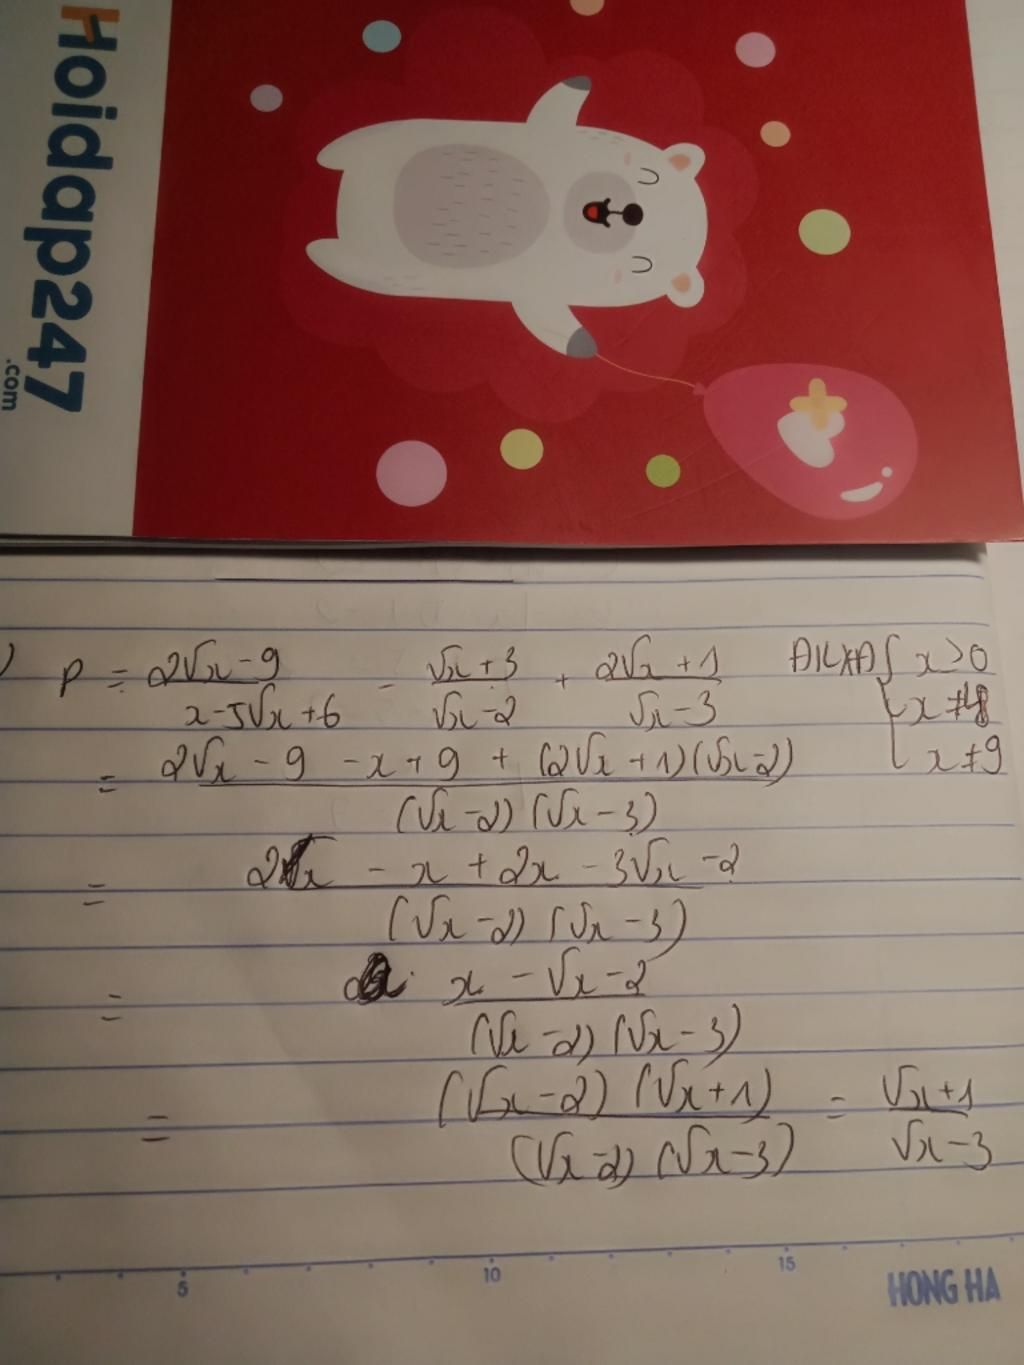 Hoidap247
.com
) P = \frac{2\sqrt{x}-9}{x-5\sqrt{x}+6} - \frac{\sqrt{x}+3}{\sqrt{x}-2} + \frac{2\sqrt{x}+1}{\sqrt{x}-3} ĐKXĐ { x>0
x≠4
x≠9
= \frac{2\sqrt{x}-9-x+9+(2\sqrt{x}+1)(\sqrt{x}-2)}{(\sqrt{x}-2)(\sqrt{x}-3)}
= \frac{2\sqrt{x}-x+2x-3\sqrt{x}-2}{(\sqrt{x}-2)(\sqrt{x}-3)}
= \frac{x-\sqrt{x}-2}{(\sqrt{x}-2)(\sqrt{x}-3)}
= \frac{(\sqrt{x}-2)(\sqrt{x}+1)}{(\sqrt{x}-2)(\sqrt{x}-3)} = \frac{\sqrt{x}+1}{\sqrt{x}-3}
5 10 15
HONG HA